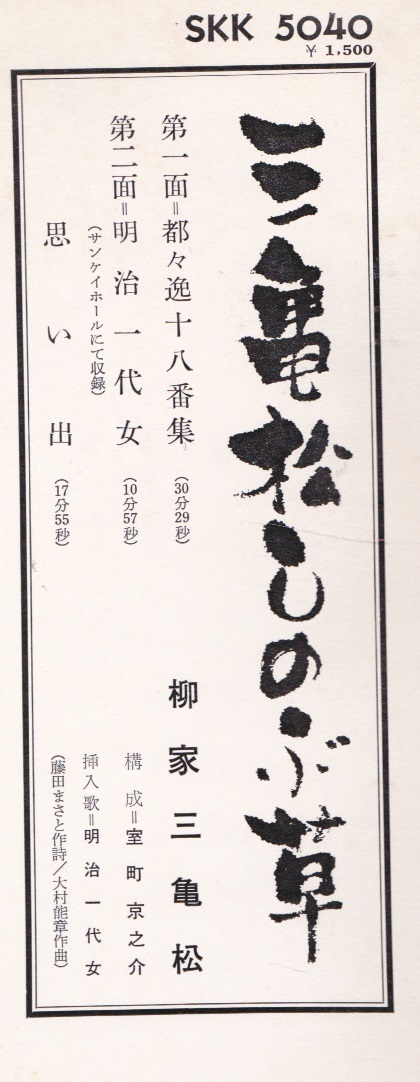 SKK 5040
¥ 1,500
三亀松しのぶ草
第一面=都々逸十八番集（30分29秒）
柳家三亀松
第二面=明治一代女（10分57秒）
構成=室町京之介
（サンケイホールにて収録）
挿入歌=明治一代女
思い出（17分55秒）
（藤田まさと作詩/大村能章作曲）